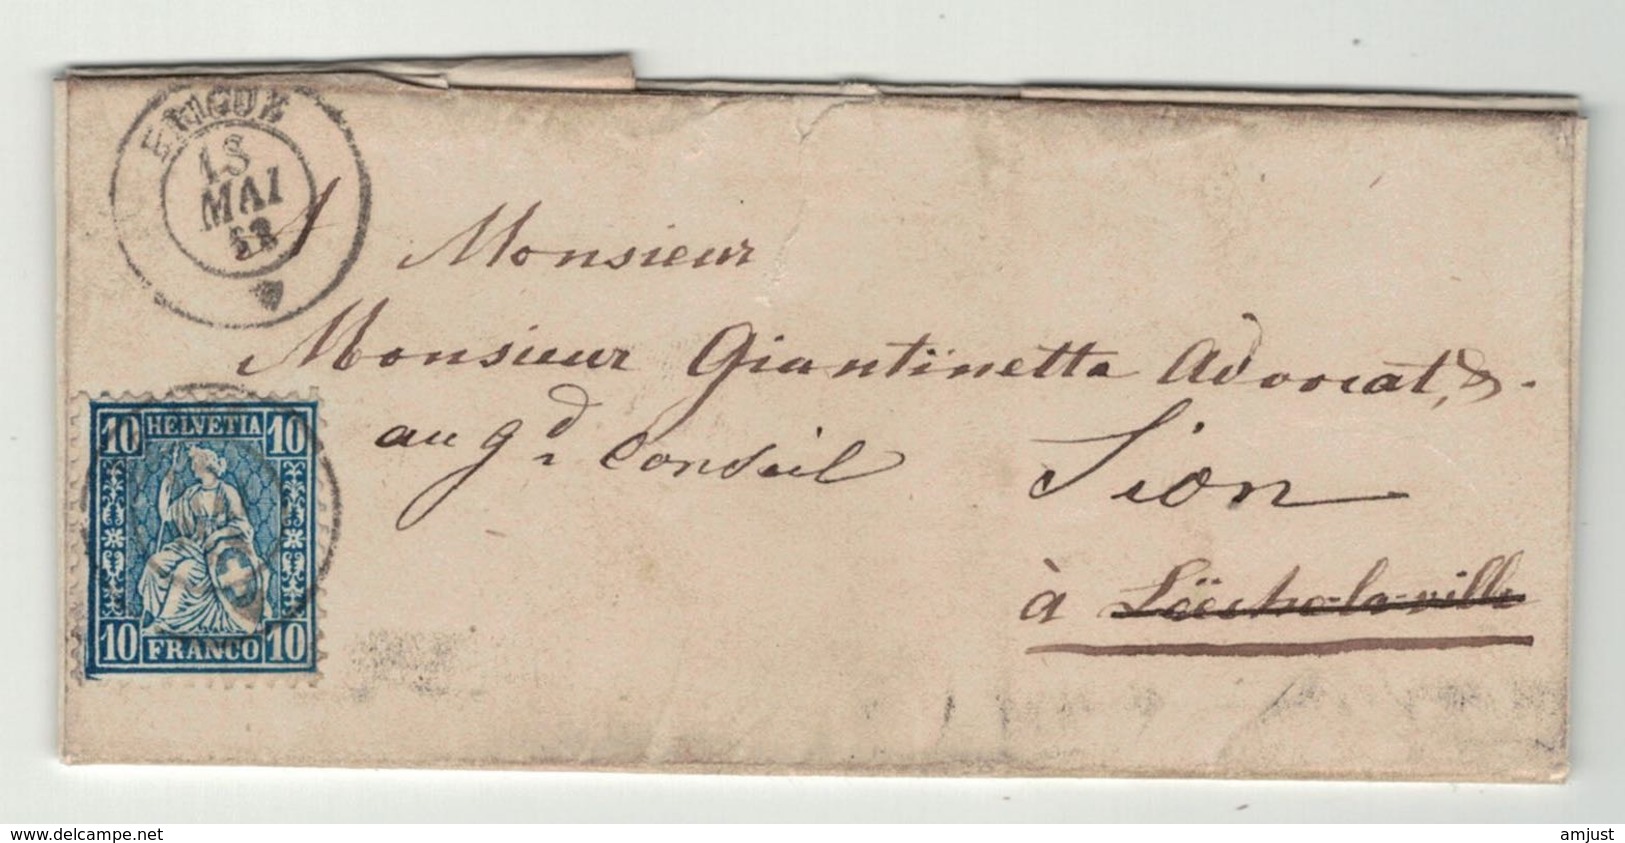 BRIGUE
18
MAI
63
A Monsieur
Monsieur Giantïnetta Advocat, &.
au gd Conseil
Sion
à Löeche-la-ville
10 HELVETIA 10
10 FRANCO 10
www.delcampe.net
amjust